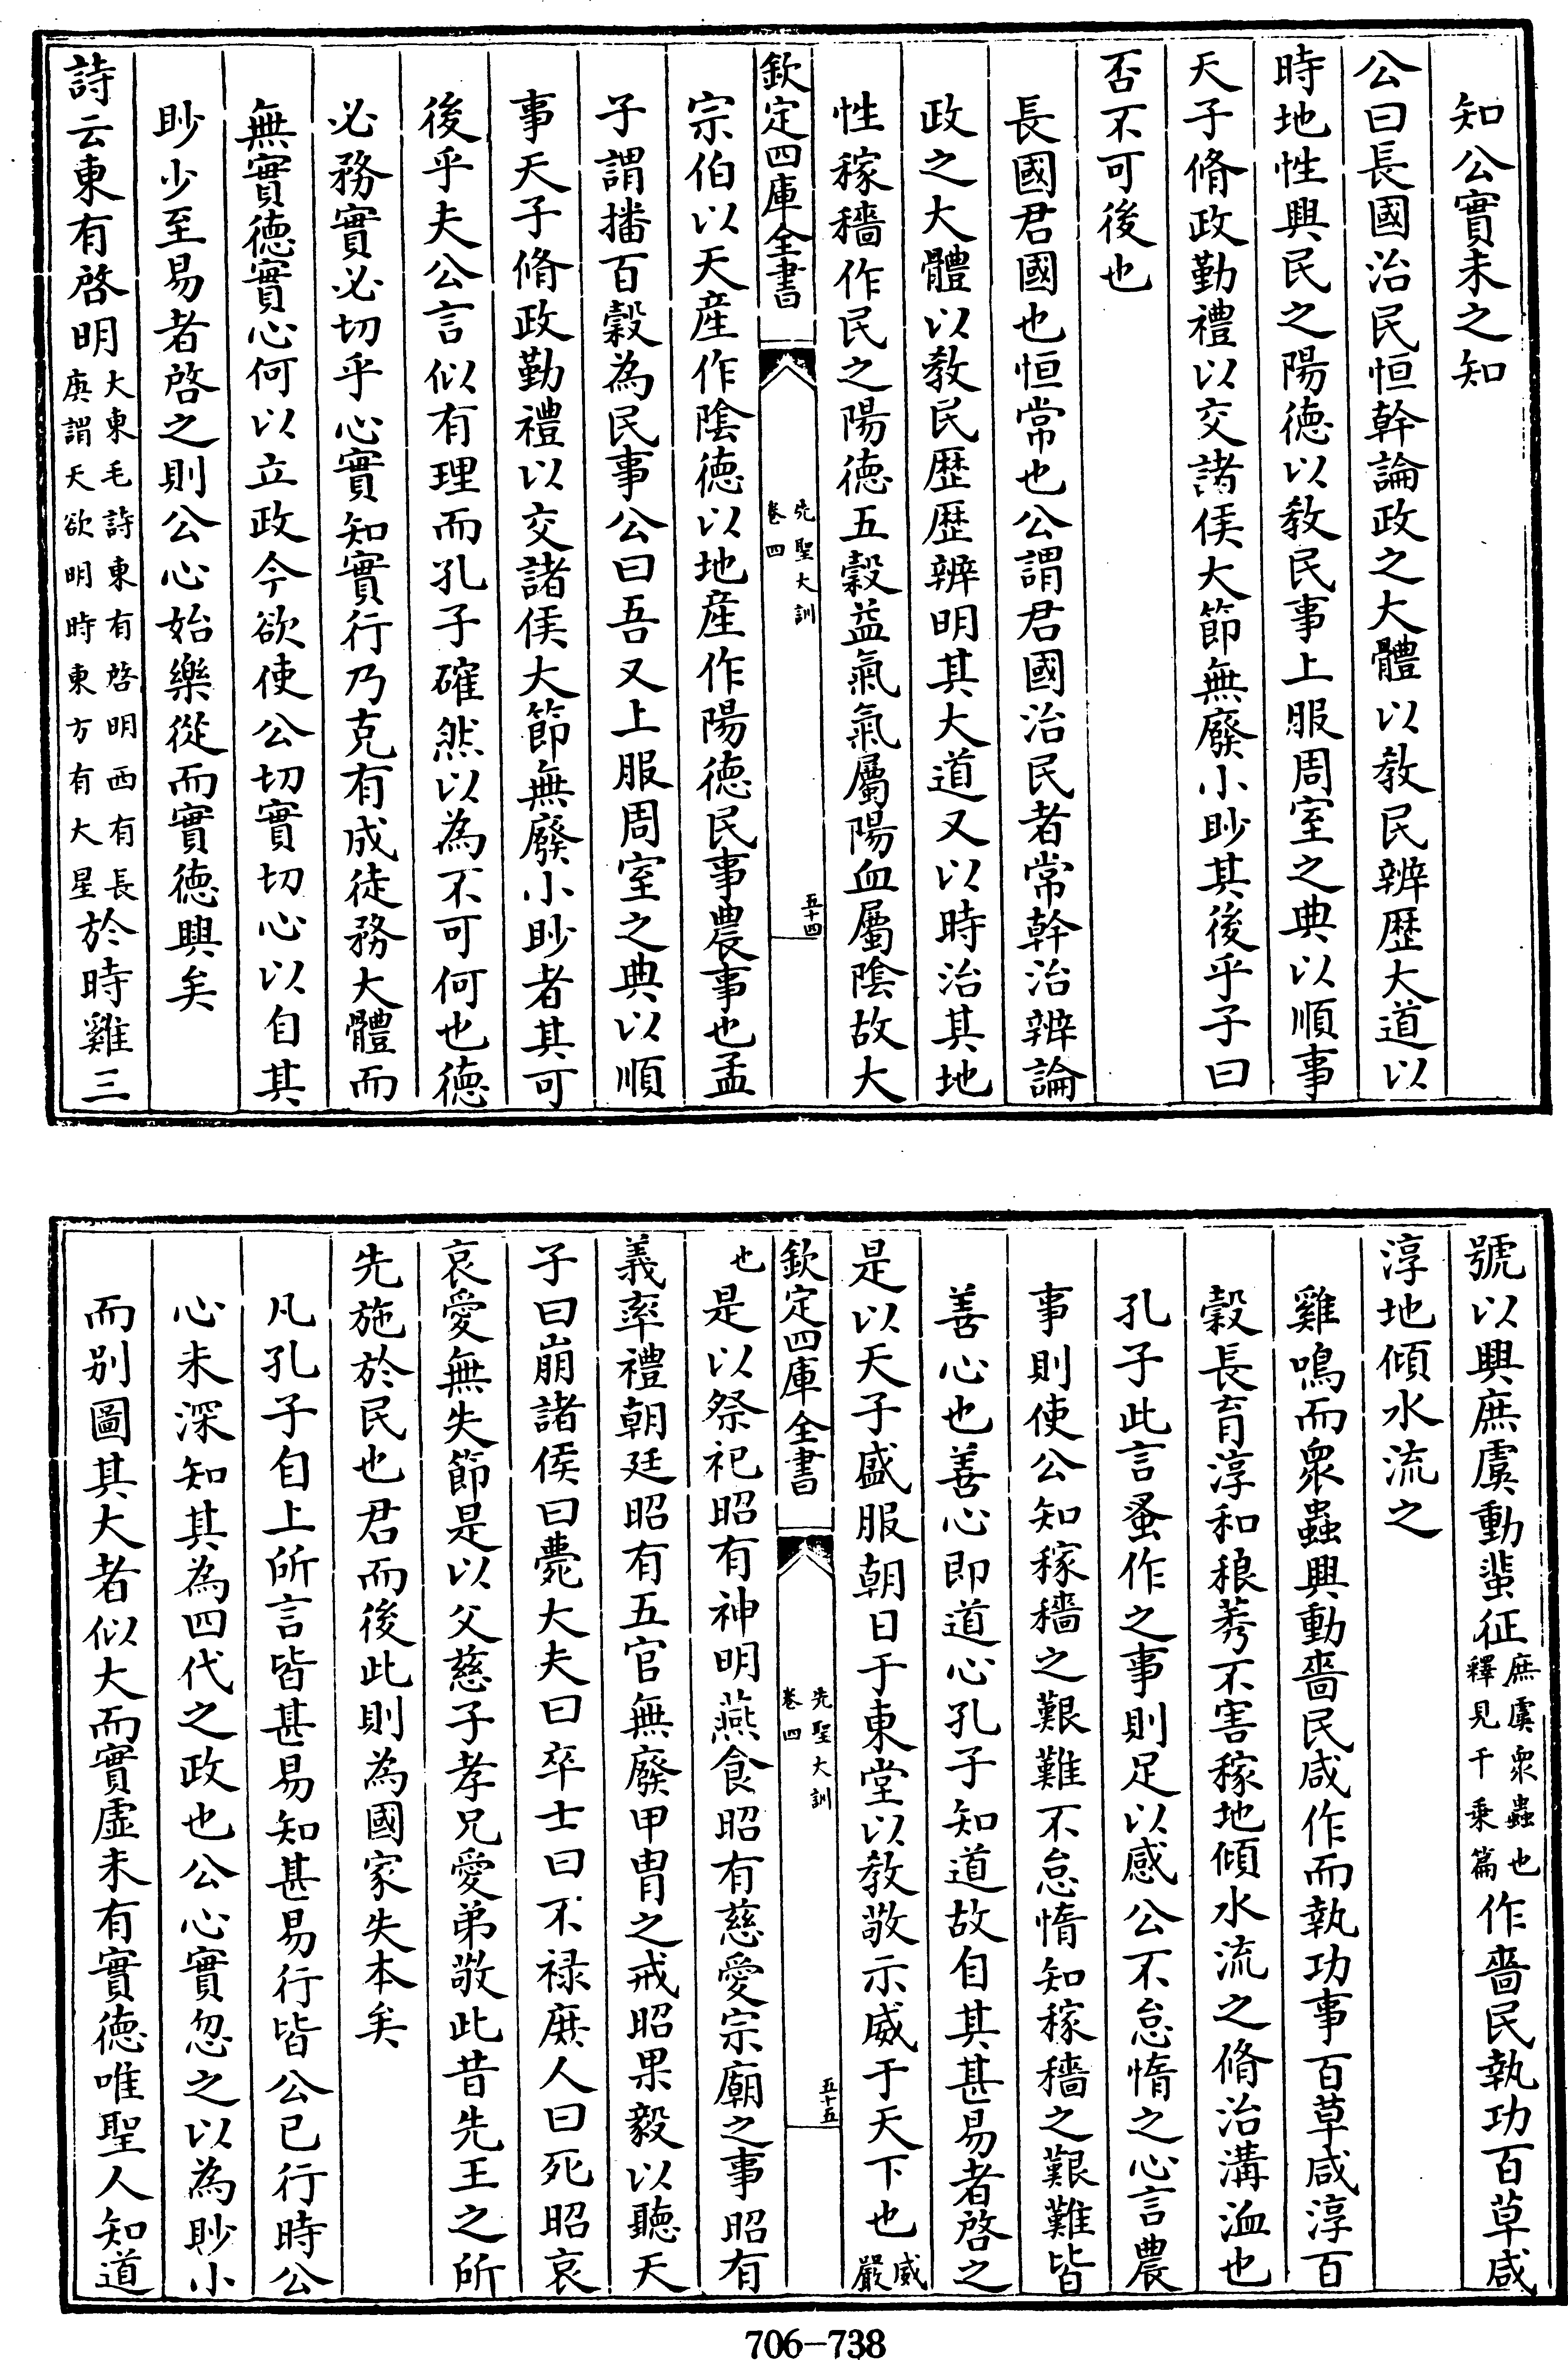 知公實未之知
公曰長國治民恒幹論政之大體以敎民辨歴大道以
時地性興民之陽徳以敎民事上服周室之典以順事
天子脩政勤禮以交諸侯大節無廢小眇其後乎子曰
否不可後也
長國君國也恒常也公謂君國治民者常幹治辨論
政之大體以敎民歴歴辨明其大道又以時治其地
性稼穡作民之陽徳五穀益氣氣屬陽血屬陰故大
欽定四庫全書
先聖大訓
卷四
五十四
宗伯以天産作陰徳以地産作陽徳民事農事也孟
子謂播百穀為民事公曰吾又上服周室之典以順
事天子脩政勤禮以交諸侯大節無廢小眇者其可
後乎夫公言似有理而孔子確然以為不可何也徳
必務實必切乎心實知實行乃克有成徒務大體而
無實徳實心何以立政今欲使公切實切心以自其
眇少至易者啓之則公心始樂從而實徳興矣
詩云東有啓明大東毛詩東有啓明西有長庚謂天欲明時東方有大星於時雞三
號以興庶虞動蜚征庶虞衆蟲也釋見千乗篇作嗇民執功百草咸
淳地傾水流之
雞鳴而衆蟲興動嗇民咸作而執功事百草咸淳百
穀長育淳和稂莠不害稼地傾水流之脩治溝洫也
孔子此言蚤作之事則足以感公不怠惰之心言農
事則使公知稼穡之艱難不怠惰知稼穡之艱難皆
善心也善心即道心孔子知道故自其甚易者啓之
是以天子盛服朝日于東堂以敎敬示威于天下也威嚴
欽定四庫全書
先聖大訓
卷四
五十五
也是以祭祀昭有神明燕食昭有慈愛宗廟之事昭有
義率禮朝廷昭有五官無廢甲胄之戒昭果毅以聽天
子曰崩諸侯曰薨大夫曰卒士曰不禄庶人曰死昭哀
哀愛無失節是以父慈子孝兄愛弟敬此昔先王之所
先施於民也君而後此則為國家失本矣
凡孔子自上所言皆甚易知甚易行皆公已行時公
心未深知其為四代之政也公心實忽之以為眇小
而别圖其大者似大而實虚未有實徳唯聖人知道
706-738